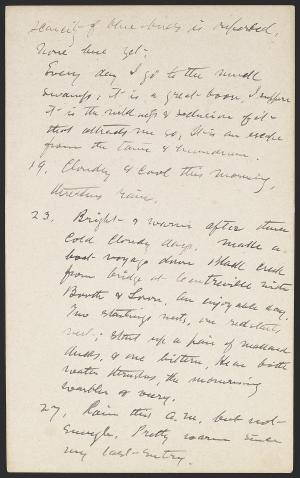 scarcity of blue-birds is reported.
None here yet.
Every day I go to the muck
swamps; it is a great boon, I suppose
it is the wildness & seclusion of it
that attracts me so, It is an escape
from the tame & humdrum.
19. Cloudy & cool this morning,
threatens rain.
23. Bright & warm after three
cold cloudy days. made a
boat voyage down Black creek
from bridge at Centreville with
Booth & Lown. An enjoyable day.
Two starlings nests, one red-tail,
nest; start up a pair of mallard
ducks, & one bittern, hear both
water thrushes, the mourning
warbler & veery.
27. Rain this a.m. but not
enough. Pretty warm since
my last entry.